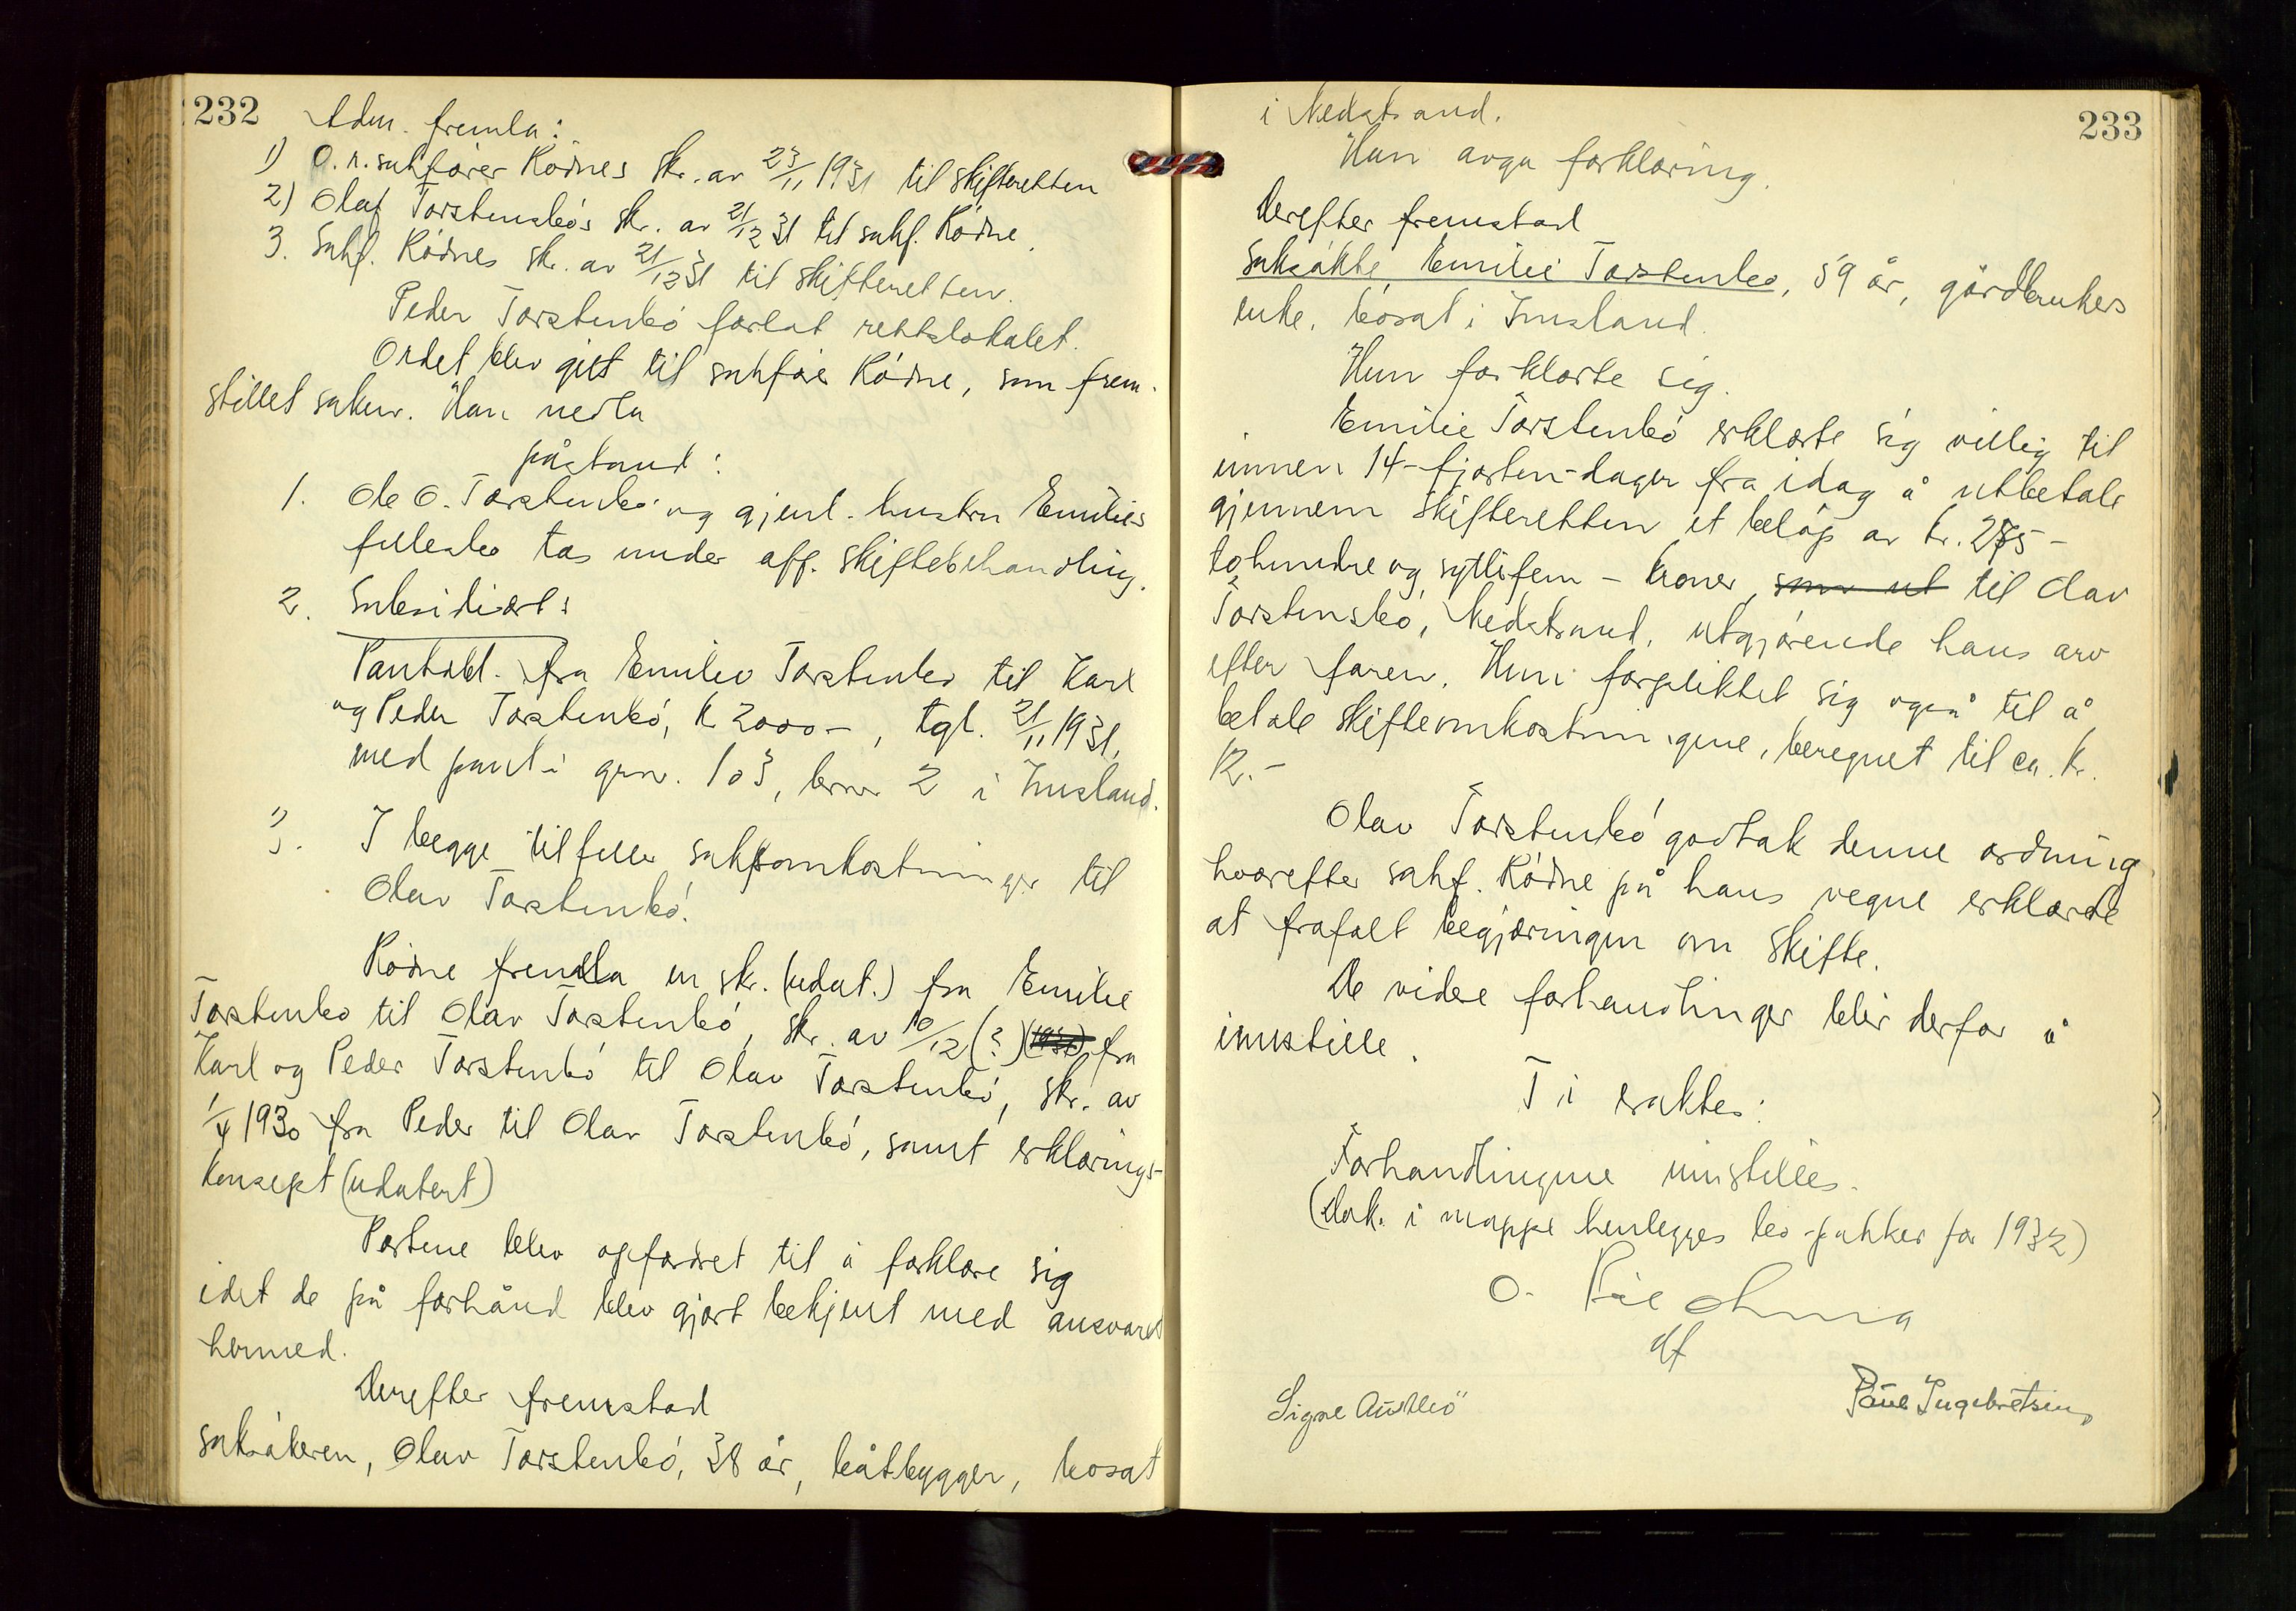 232
Adm. fremla:
1) O.r.sakfører Rødnes skr. av 23/11 1931 til skifteretten
2) Olaf Torstensbøs skr. av 21/12 31 til sakf. Rødne.
3. Sakf. Rødnes skr. av 21/12 31 til skifteretten.
Peder Torstenbø forlot rettslokalet.
Ordet blev gitt til sakfører Rødne, som frem-
stillet saken. Han nedla
påstand:
1. Ole O. Torstenbø og gjenl. hustru Emilies
fellesbo tas under off. skiftebehandling.
2. Subsidiært:
Pantobl. fra Emilie Torstenbø til Karl
og Peder Torstenbø, kr 2000-, tgl. 21/11 1931,
med pant i grnr. 103, brnr 2 i Imsland.
3. I begge tilfelle saksomkostninger til
Olav Torstenbø.
Rødne fremla en skr. (udat.) fra Emilie
Torstenbø til Olav Torstenbø, skr. av 10/12 (?) (1931) fra
Karl og Peder Torstenbø til Olav Torstenbø, skr. av
1/4 1930 fra Peder til Olav Torstenbø, samt erklærings-
konsept (udatert)
Partene blev opfordret til å forklare sig
idet de på forhånd blev gjort bekjent med ansvaret
hermed.
Derefter fremstod
saksøkeren, Olav Torstenbø, 38 år, båtbygger, bosat
233
i Nedstrand.
Han avga forklaring.
Derefter fremstod
Saksøkte, Emilie Torstenbø, 59 år, gårdbrukers
enke, bosat i Imsland.
Hun forklarte sig.
Emilie Torstenbø erklærte sig villig til
innen 14-fjorten-dager fra idag å utbetale
gjennem skifteretten et beløp av kr. 275-
tohundre og syttifem - kroner, som ut til Olav
Torstensbø, Nedstrand, utgjørende hans arv
efter faren. Hun forpliktet sig også til å
betale skifteomkostningene, beregnet til ca. kr.
12.-
Olav Torstenbø godtok denne ordning
hvorefter sakf. Rødne på hans vegne erklærte
at frafalt begjæringen om skifte.
De videre forhandlinger blir derfor å
innstille.
Ti eraktes:
Forhandlingene innstilles.
(Dok. i mappe henlegges bo-pakker for 1932)
O.
df
Signe
Paul Ingebretsen